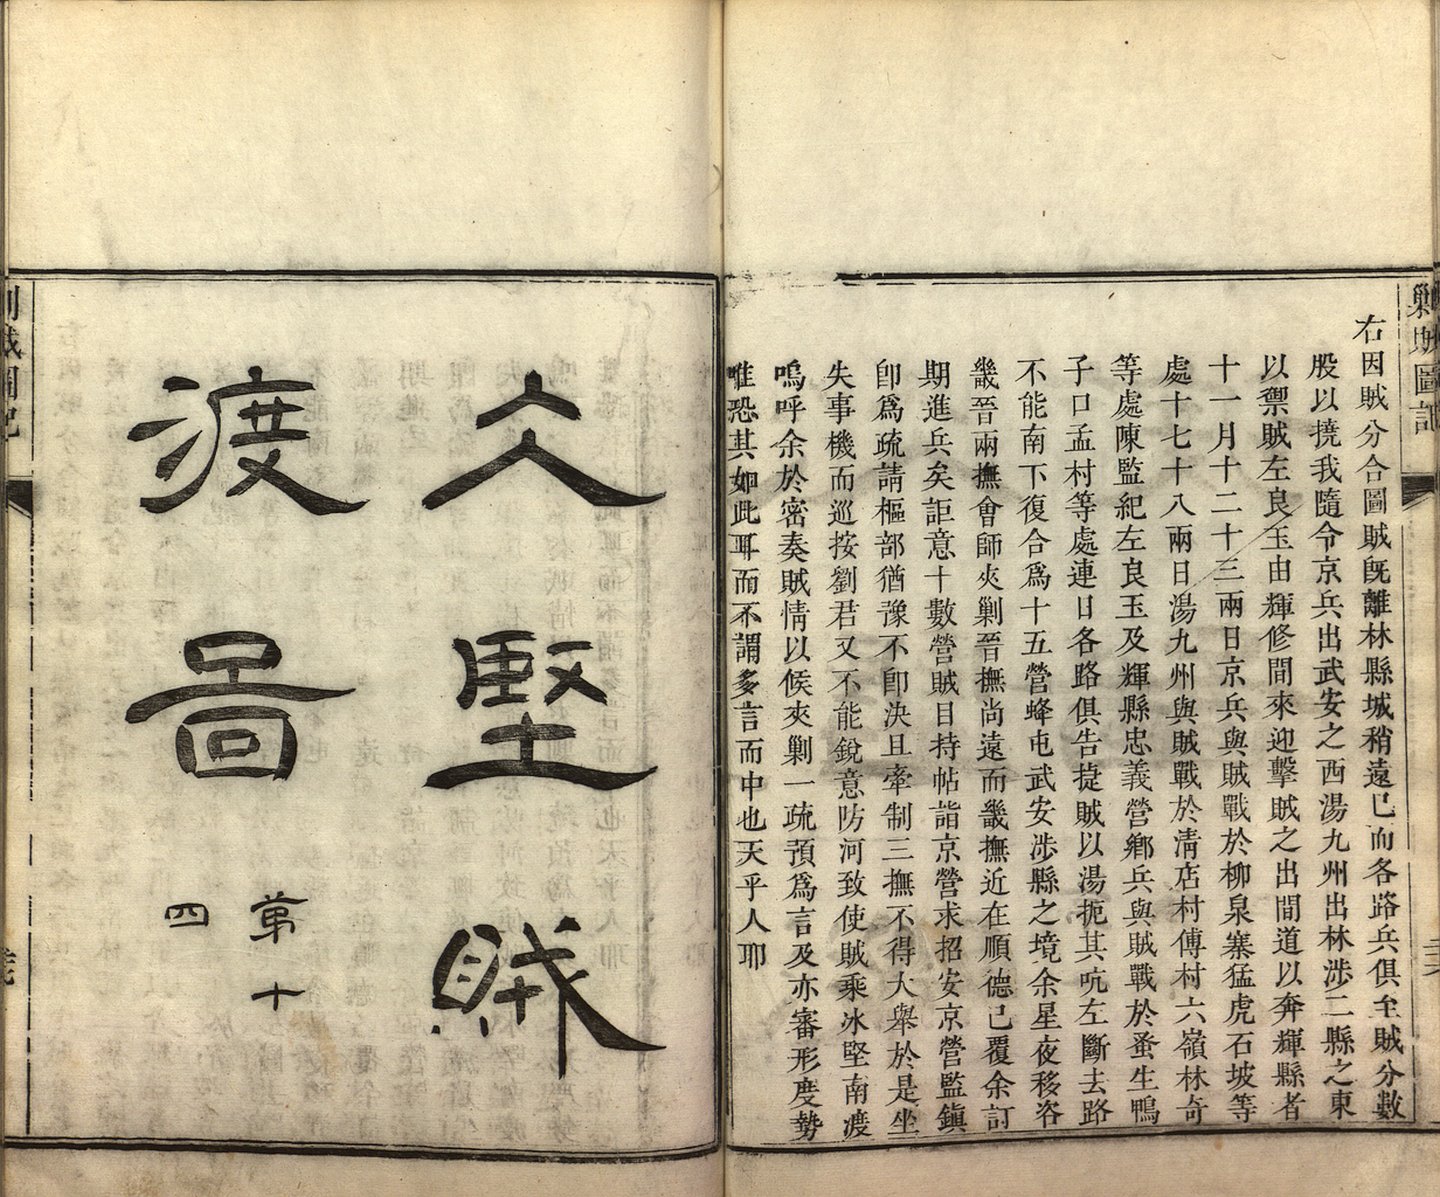 剿賊圖記
右因賊分合圖賊旣離林縣城稍遠已而各路兵俱至賊分數
股以撓我隨令京兵出武安之西湯九州出林涉二縣之東
以禦賊左良玉由輝修間來迎擊賊之出間道以奔輝縣者
十一月十二十三兩日京兵與賊戰於柳泉寨猛虎石坡等
處十七十八兩日湯九州與賊戰於淸店村傅村六嶺林奇
等處陳監紀左良玉及輝縣忠義營鄉兵與賊戰於蚤生鴨
子口孟村等處連日各路俱告捷賊以湯扼其吭左斷去路
不能南下復合爲十五營蜂屯武安涉縣之境余星夜移咨
畿晉兩撫會師夾剿晉撫尚遠而畿撫近在順德已覆余訂
期進兵矣詎意十數營賊目持帖詣京營求招安京營監鎭
卽爲疏請樞部猶豫不卽決且牽制三撫不得大舉於是坐
失事機而巡按劉君又不能銳意防河致使賊乘冰堅南渡
嗚呼余於密奏賊情以候夾剿一疏預爲言及亦審形度勢
唯恐其如此耳而不謂多言而中也天乎人耶
仌堅賊
渡圖
第十
四
剿賊圖記